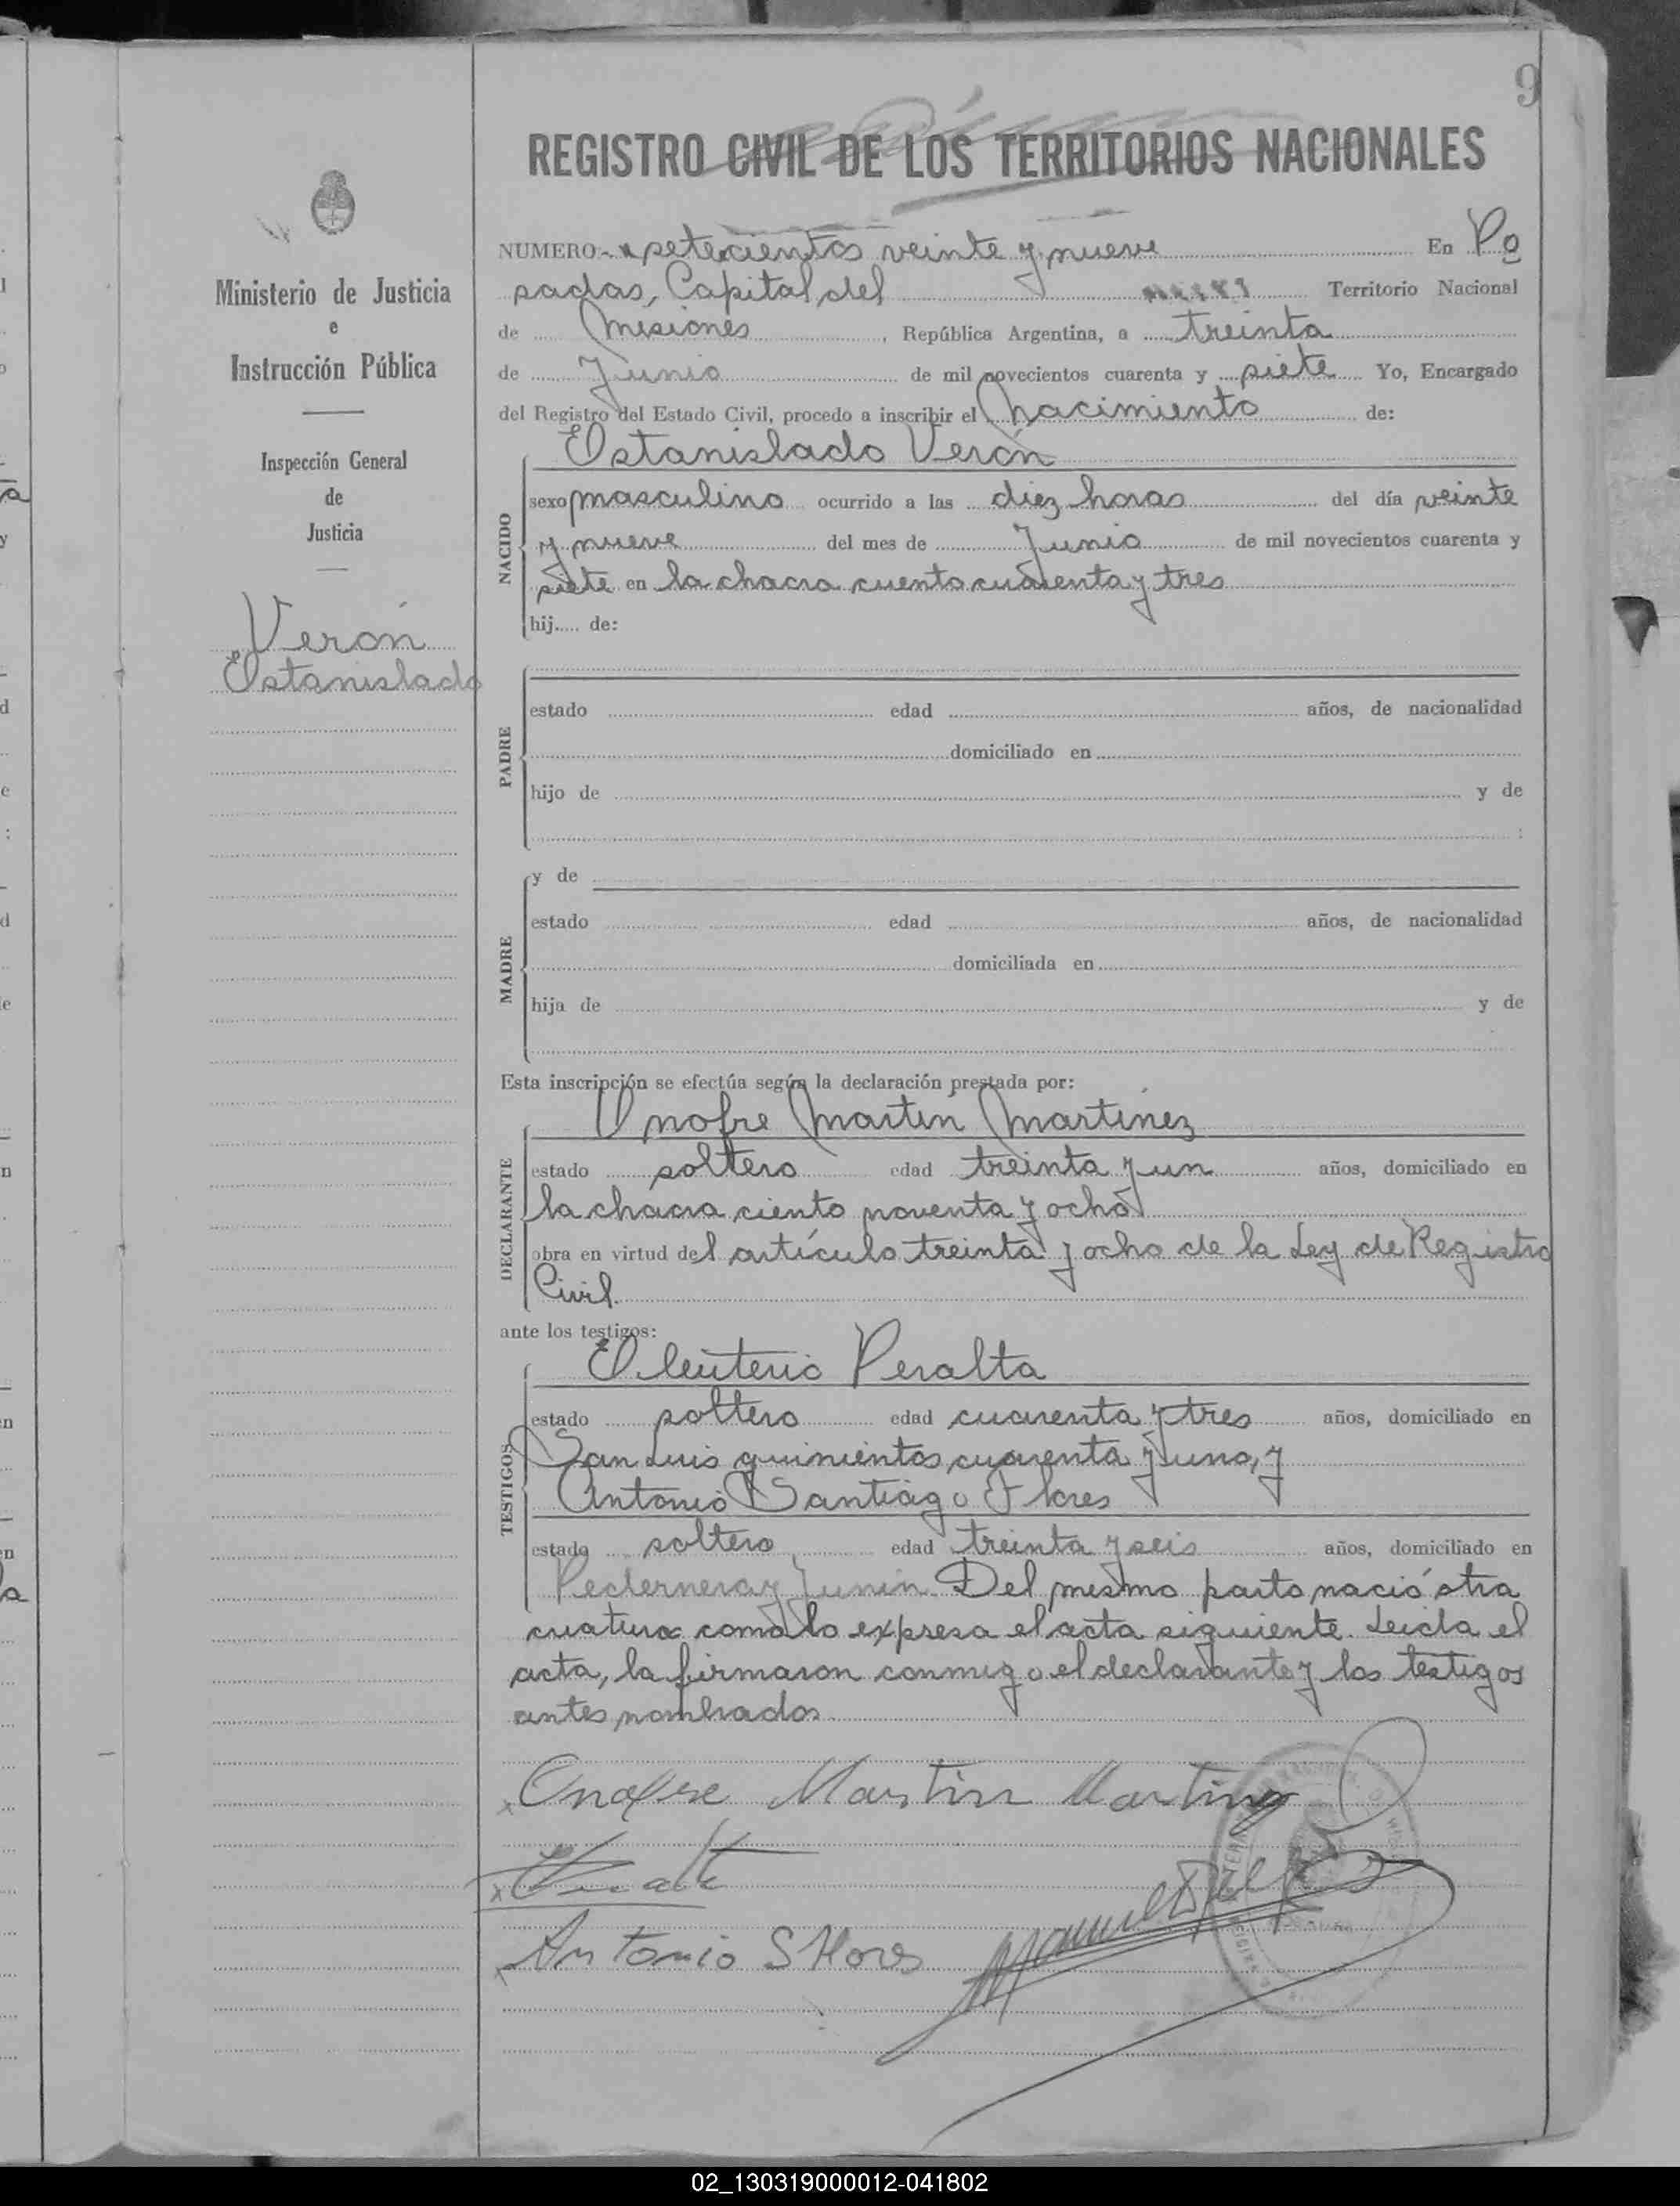 9
REGISTRO CIVIL DE LOS TERRITORIOS NACIONALES
Ministerio de Justicia
e
Instrucción Pública
Inspección General
de
Justicia
Verón
Estanislado
NUMERO setecientos veinte y nueve En Po
sadas, Capital del Territorio Nacional
de Misiones, República Argentina, a treinta
de Junio de mil novecientos cuarenta y siete Yo, Encargado
del Registro del Estado Civil, procedo a inscribir el nacimiento de:
Estanislado Verón
NACIDO
sexo masculino ocurrido a las diez horas del día veinte
y nueve del mes de Junio de mil novecientos cuarenta y
siete en la chacra cuento cuarenta y tres
hij..... de:
PADRE
estado edad años, de nacionalidad
domiciliado en
hijo de y de
MADRE
y de
estado edad años, de nacionalidad
domiciliada en
hija de y de
Esta inscripción se efectúa según la declaración prestada por:
DECLARANTE
Onofre Martín Martínez
estado soltero edad treinta y un años, domiciliado en
la chacra ciento noventa y ocho
obra en virtud del artículo treinta y ocho de la Ley de Registro
Civil.
ante los testigos:
TESTIGOS
Eleuterio Peralta
estado soltero edad cuarenta y tres años, domiciliado en
San Luis quinientos cuarenta y uno, y
Antonio Santiago Flores
estado soltero, edad treinta y seis años, domiciliado en
Pedernera y Junín. Del mesmo parto nació otra
criatura como lo expresa el acta siguiente. Leida el
acta, la firmaron conmigo el declarante y los testigos
antes nombrados
Onofre Martin Martinez
Antonio S Flores
02_130319000012-041802